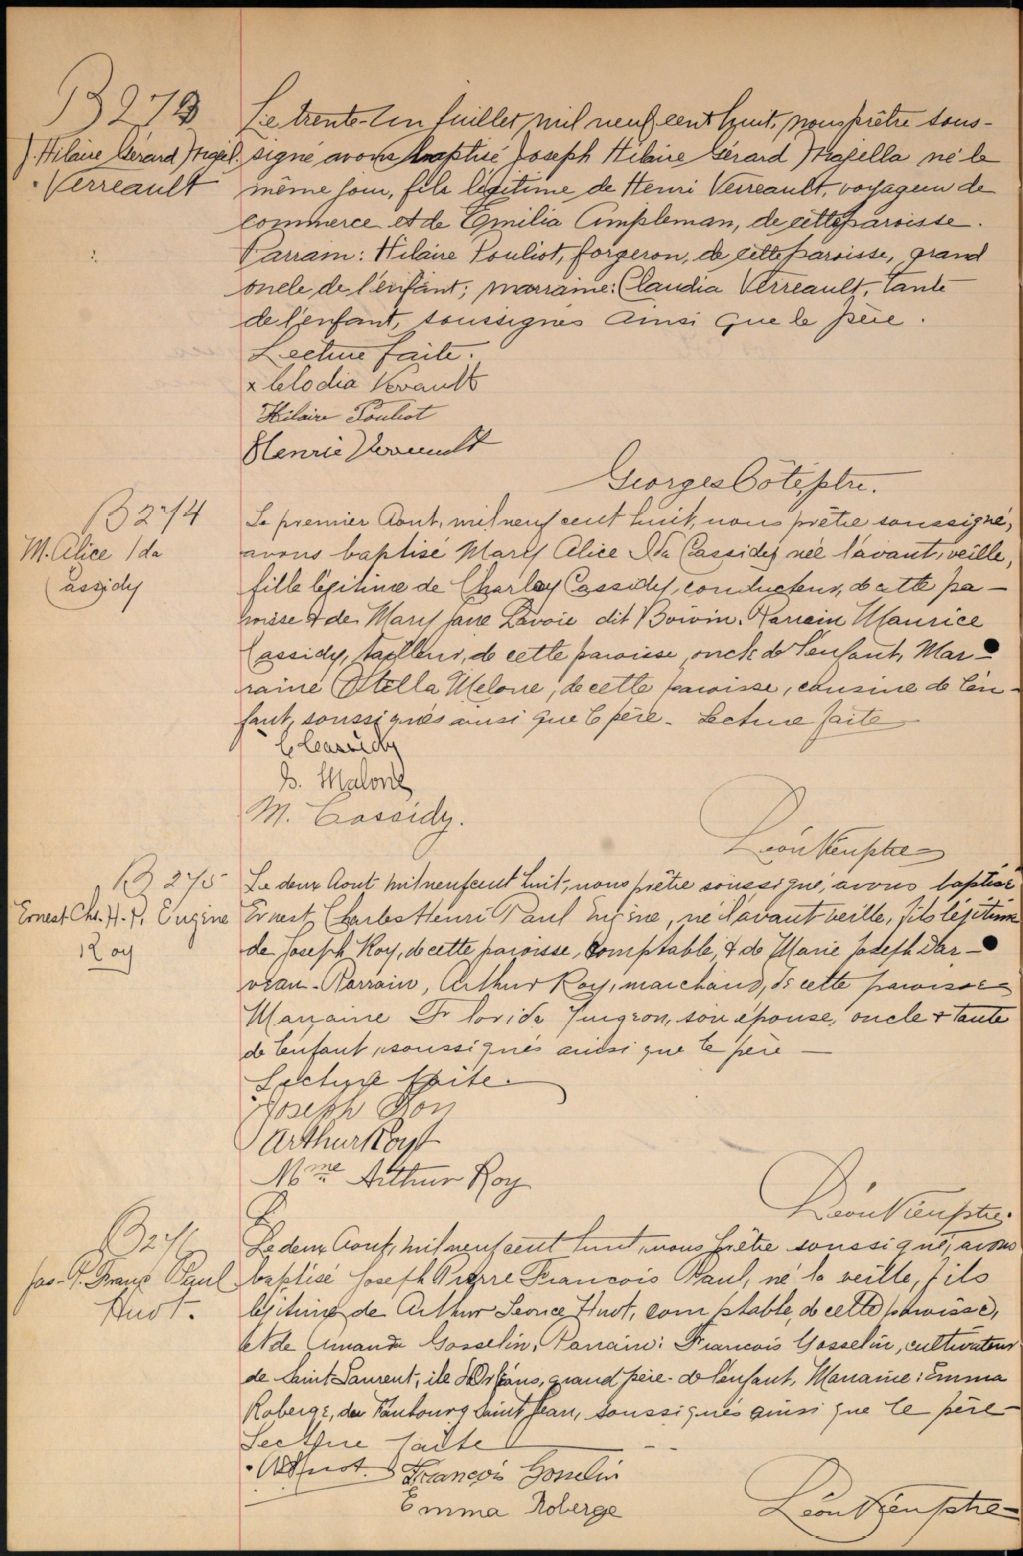 B 273
J. Hilaire Gérard Magel.
Verreault
Le trente-un Juillet mil neuf cent huit, nous prêtre sous-
signé, avons baptisé Joseph Hilaire Gérard Magella né le
même jour, fils légitime de Henri Verreault, voyageur de
commerce et de Emilia Ampleman, de cette paroisse.
Parrain: Hilaire Pouliot, forgeron, de cette paroisse, grand
oncle de l'enfant; marraine: Claudia Verreault, tante
de l'enfant, soussignés ainsi que le père.
Lecture faite.
x Clodia Verault
Hilaire Pouliot
Henrie Verreault
Georges Côté, ptre.
B 274
M. Alice Ida
Cassidy
Le premier Aout, mil neuf cent huit, nous prêtre soussigné,
avons baptisé Mary Alice Ida Cassidy née l'avant, veille,
fille légitime de Charley Cassidy, conducteur, de cette pa-
roisse & de Mary Jane Lavoie dit Boivin. Parrain Maurice
Cassidy, tailleur, de cette paroisse oncle de l'enfant, Mar-
raine Stella Melone, de cette paroisse, cousine de l'en-
fant, soussignés ainsi que le père - Lecture faite
C Cassidy
S. Malone
M. Cassidy.
Léon Vien ptre
B 275
Ernest Chs. H. P. Eugène
Roy
Le deux Aout mil neuf cent huit, nous prêtre soussigné, avons baptisé
Ernest Charles Henri Paul Eugène, né l'avant veille, fils légitime
de Joseph Roy, de cette paroisse, comptable, & de Marie Joseph Dar-
veau - Parrain, Arthur Roy, marchand, de cette paroisse
Marraine Florida Turgeon, son épouse, oncle & tante
de l'enfant, soussignés ainsi que le père -
Lecture faite.
Joseph Roy
Arthur Roy
Mme Arthur Roy
Léon Vien ptre.
B 276
Jos. P. Franc Paul
Huot.
Le deux Aout, mil neuf cent huit, nous prêtre soussigné, avons
baptisé Joseph Pierre François Paul, né la veille, fils
légitime de Arthur Leonce Huot, comptable, de cette paroisse,
et de Amanda Gosselin, Parrain: François Gosselin, cultivateur
de Saint-Laurent, ile d'Orléans, grand père - de l'enfant, Marraine: Emma
Roberge, du Faubourg Saint Jean, soussignés ainsi que le père -
Lecture faite
A Huot. François Gosselin
Emma Roberge
Léon Vien ptre